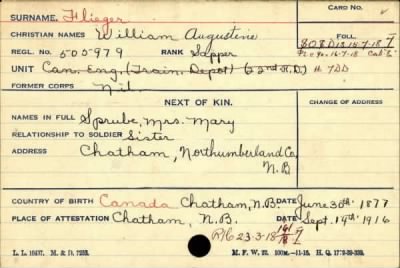 CARD No.
SURNAME. Flieger
CHRISTIAN NAMES William Augustine
REGL. No. 505979 RANK Sapper
FOLL.
UNIT Can. Eng. (Train. Depot) (22nd R.D.) H 7DD
FORMER CORPS Nil
NEXT OF KIN.
CHANGE OF ADDRESS
NAMES IN FULL Sprube, Mrs. Mary
RELATIONSHIP TO SOLDIER Sister
ADDRESS Chatham, Northumberland Co,
N.B
COUNTRY OF BIRTH Canada Chatham, N.B. DATE June 30th 1877
PLACE OF ATTESTATION Chatham, N.B. DATE Sept. 19th 1916
R/C 23-3-18
L. L. 16437. M. & D. 7233. M. F. W. 22. 100M.—11-16. H. Q. 1772-39-339.